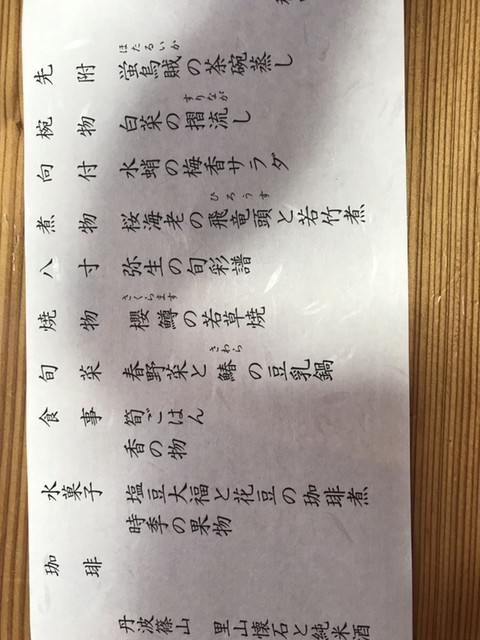 先附 蛍烏賊の茶碗蒸し
ほたるいか
椀物 白菜の摺流し
すりなが
向付 水蛸の梅香サラダ
煮物 桜海老の飛竜頭と若竹煮
ひろうす
八寸 弥生の旬彩譜
焼物 櫻鱒の若草焼
さくらます
旬菜 春野菜と鰆の豆乳鍋
さわら
食事 筍ごはん
香の物
水菓子 塩豆大福と花豆の珈琲煮
時季の果物
珈琲
丹波篠山 里山懐石と純米酒